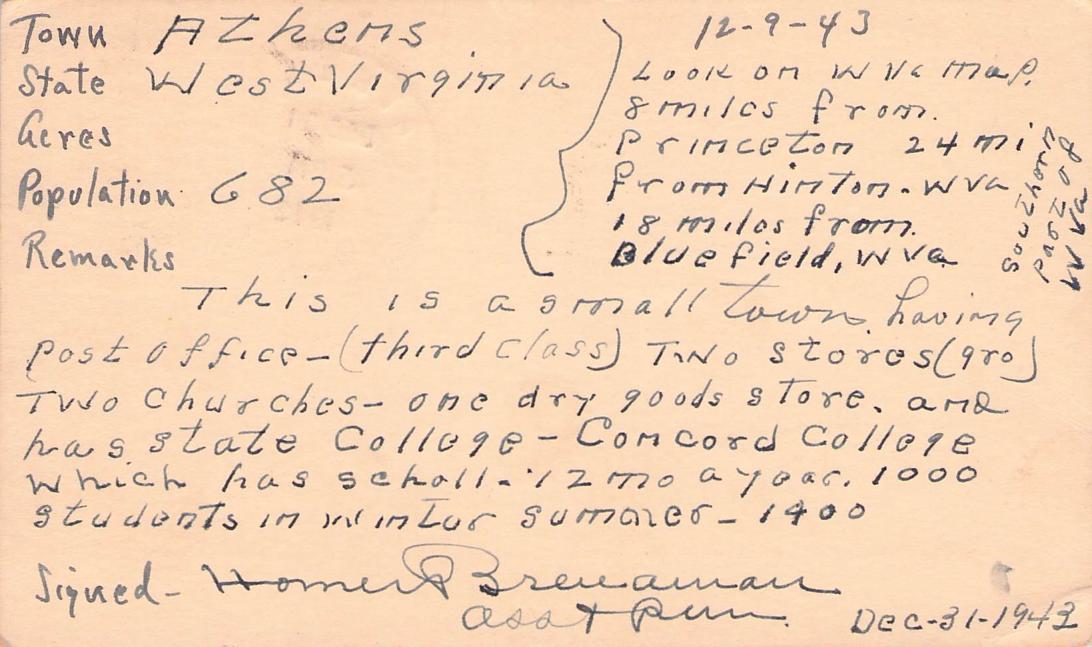 Town Athens
State West Virginia
Acres
Population 682
Remarks
12-9-43
Look on W Va map.
8 miles from
Princeton 24 mi
from Hinton - W Va
18 miles from
Bluefield, W Va
Southern
part of
W Va
This is a small town having
post office - (third class) Two stores (gro)
Two Churches - one dry goods store. and
has state College - Concord College
which has scholl - 12 mo a year. 1000
students in winter summer - 1400
Signed - Homer
Asst
Dec-31-1943